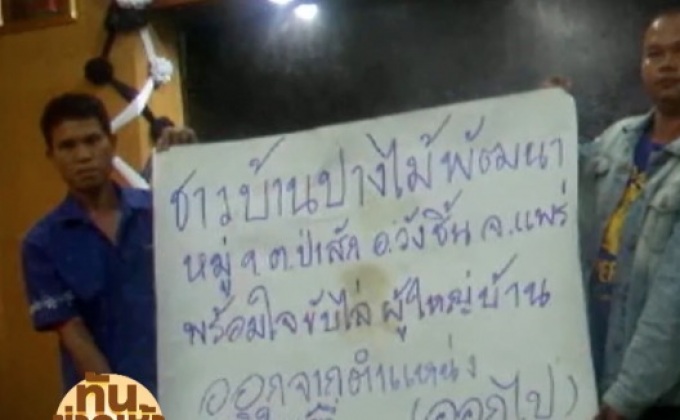 ชาวบ้านปางไม้พัฒนา
หมู่ ๆ ต.ป่าสัก อ.วังชิ้น จ.แพร่
พร้อมใจขับไล่ ผู้ใหญ่บ้าน
ออกจากตำแหน่ง
(ออกไป)
ทัน